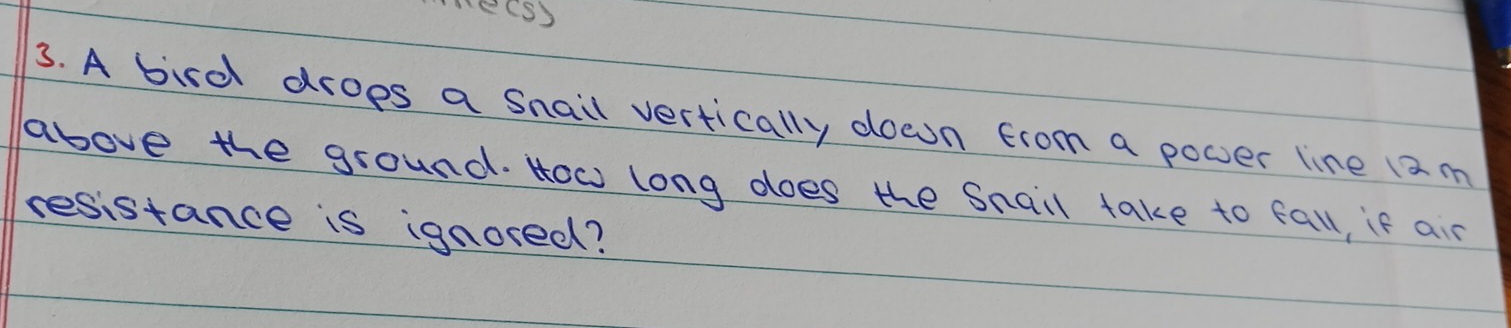 3. A bird drops a snail vertically down from a power line 12 m
above the ground. How long does the snail take to fall, if air
resistance is ignored?